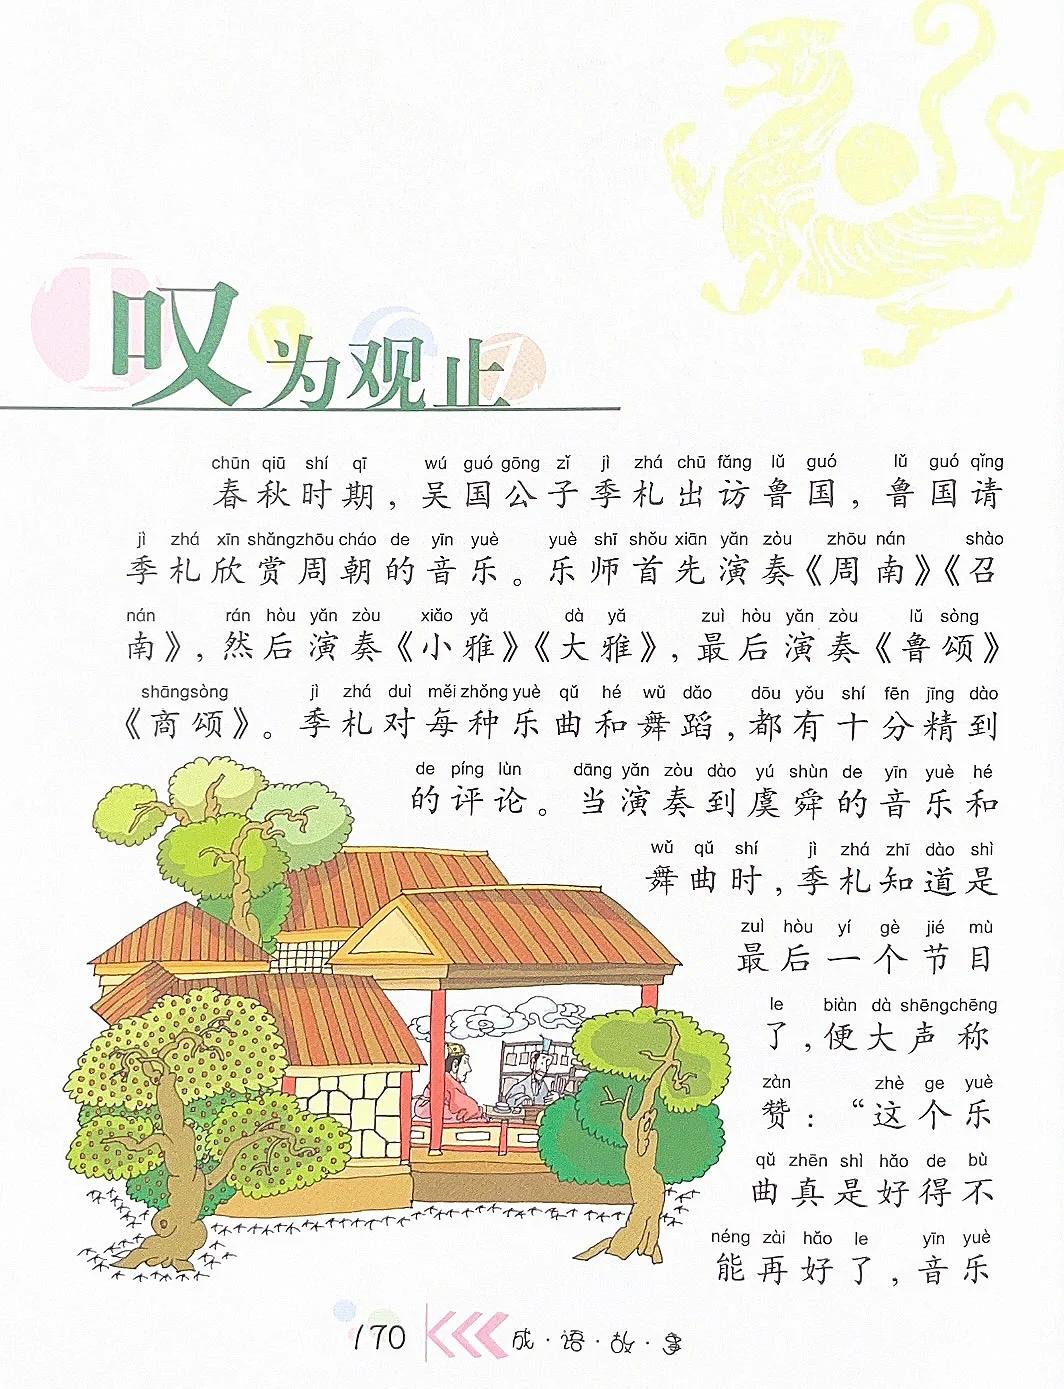 叹为观止
chūn qiū shí qī wú guó gōng zǐ jì zhá chū fǎng lǔ guó lǔ guó qǐng
春秋时期，吴国公子季札出访鲁国，鲁国请
jì zhá xīn shǎngzhōu cháo de yīn yuè yuè shī shǒu xiān yǎn zòu zhōu nán shào
季札欣赏周朝的音乐。乐师首先演奏《周南》《召
nán rán hòu yǎn zòu xiǎo yǎ dà yǎ zuì hòu yǎn zòu lǔ sòng
南》，然后演奏《小雅》《大雅》，最后演奏《鲁颂》
shāngsòng jì zhá duì měi zhǒng yuè qǔ hé wǔ dǎo dōu yǒu shí fēn jīng dào
《商颂》。季札对每种乐曲和舞蹈，都有十分精到
de píng lùn dāng yǎn zòu dào yú shùn de yīn yuè hé
的评论。当演奏到虞舜的音乐和
wǔ qǔ shí jì zhá zhī dào shì
舞曲时，季札知道是
zuì hòu yí gè jié mù
最后一个节目
le biàn dà shēngchēng
了，便大声称
zàn zhè ge yuè
赞：“这个乐
qǔ zhēn shì hǎo de bù
曲真是好得不
néng zài hǎo le yīn yuè
能再好了，音乐
170 成·语·故·事